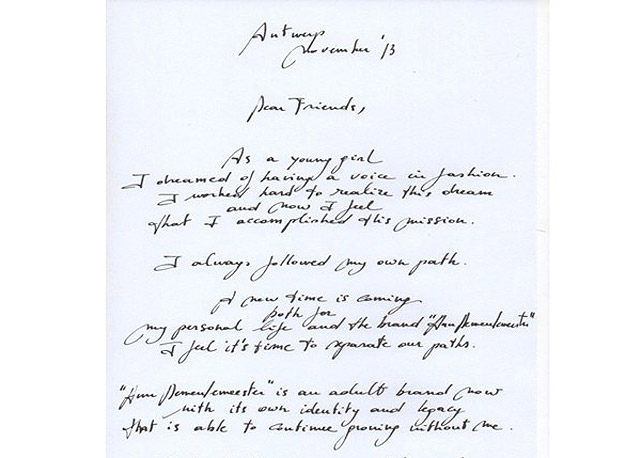 Antwerp
november '13
Dear Friends,
As a young girl
I dreamed of having a voice in fashion.
I worked hard to realize this dream
and now I feel
that I accomplished this mission.
I always followed my own path.
A new time is coming
both for
my personal life and the brand "Ann Demeulemeester"
I feel it's time to separate our paths.
"Ann Demeulemeester" is an adult brand now
with its own identity and legacy
that is able to continue growing without me.